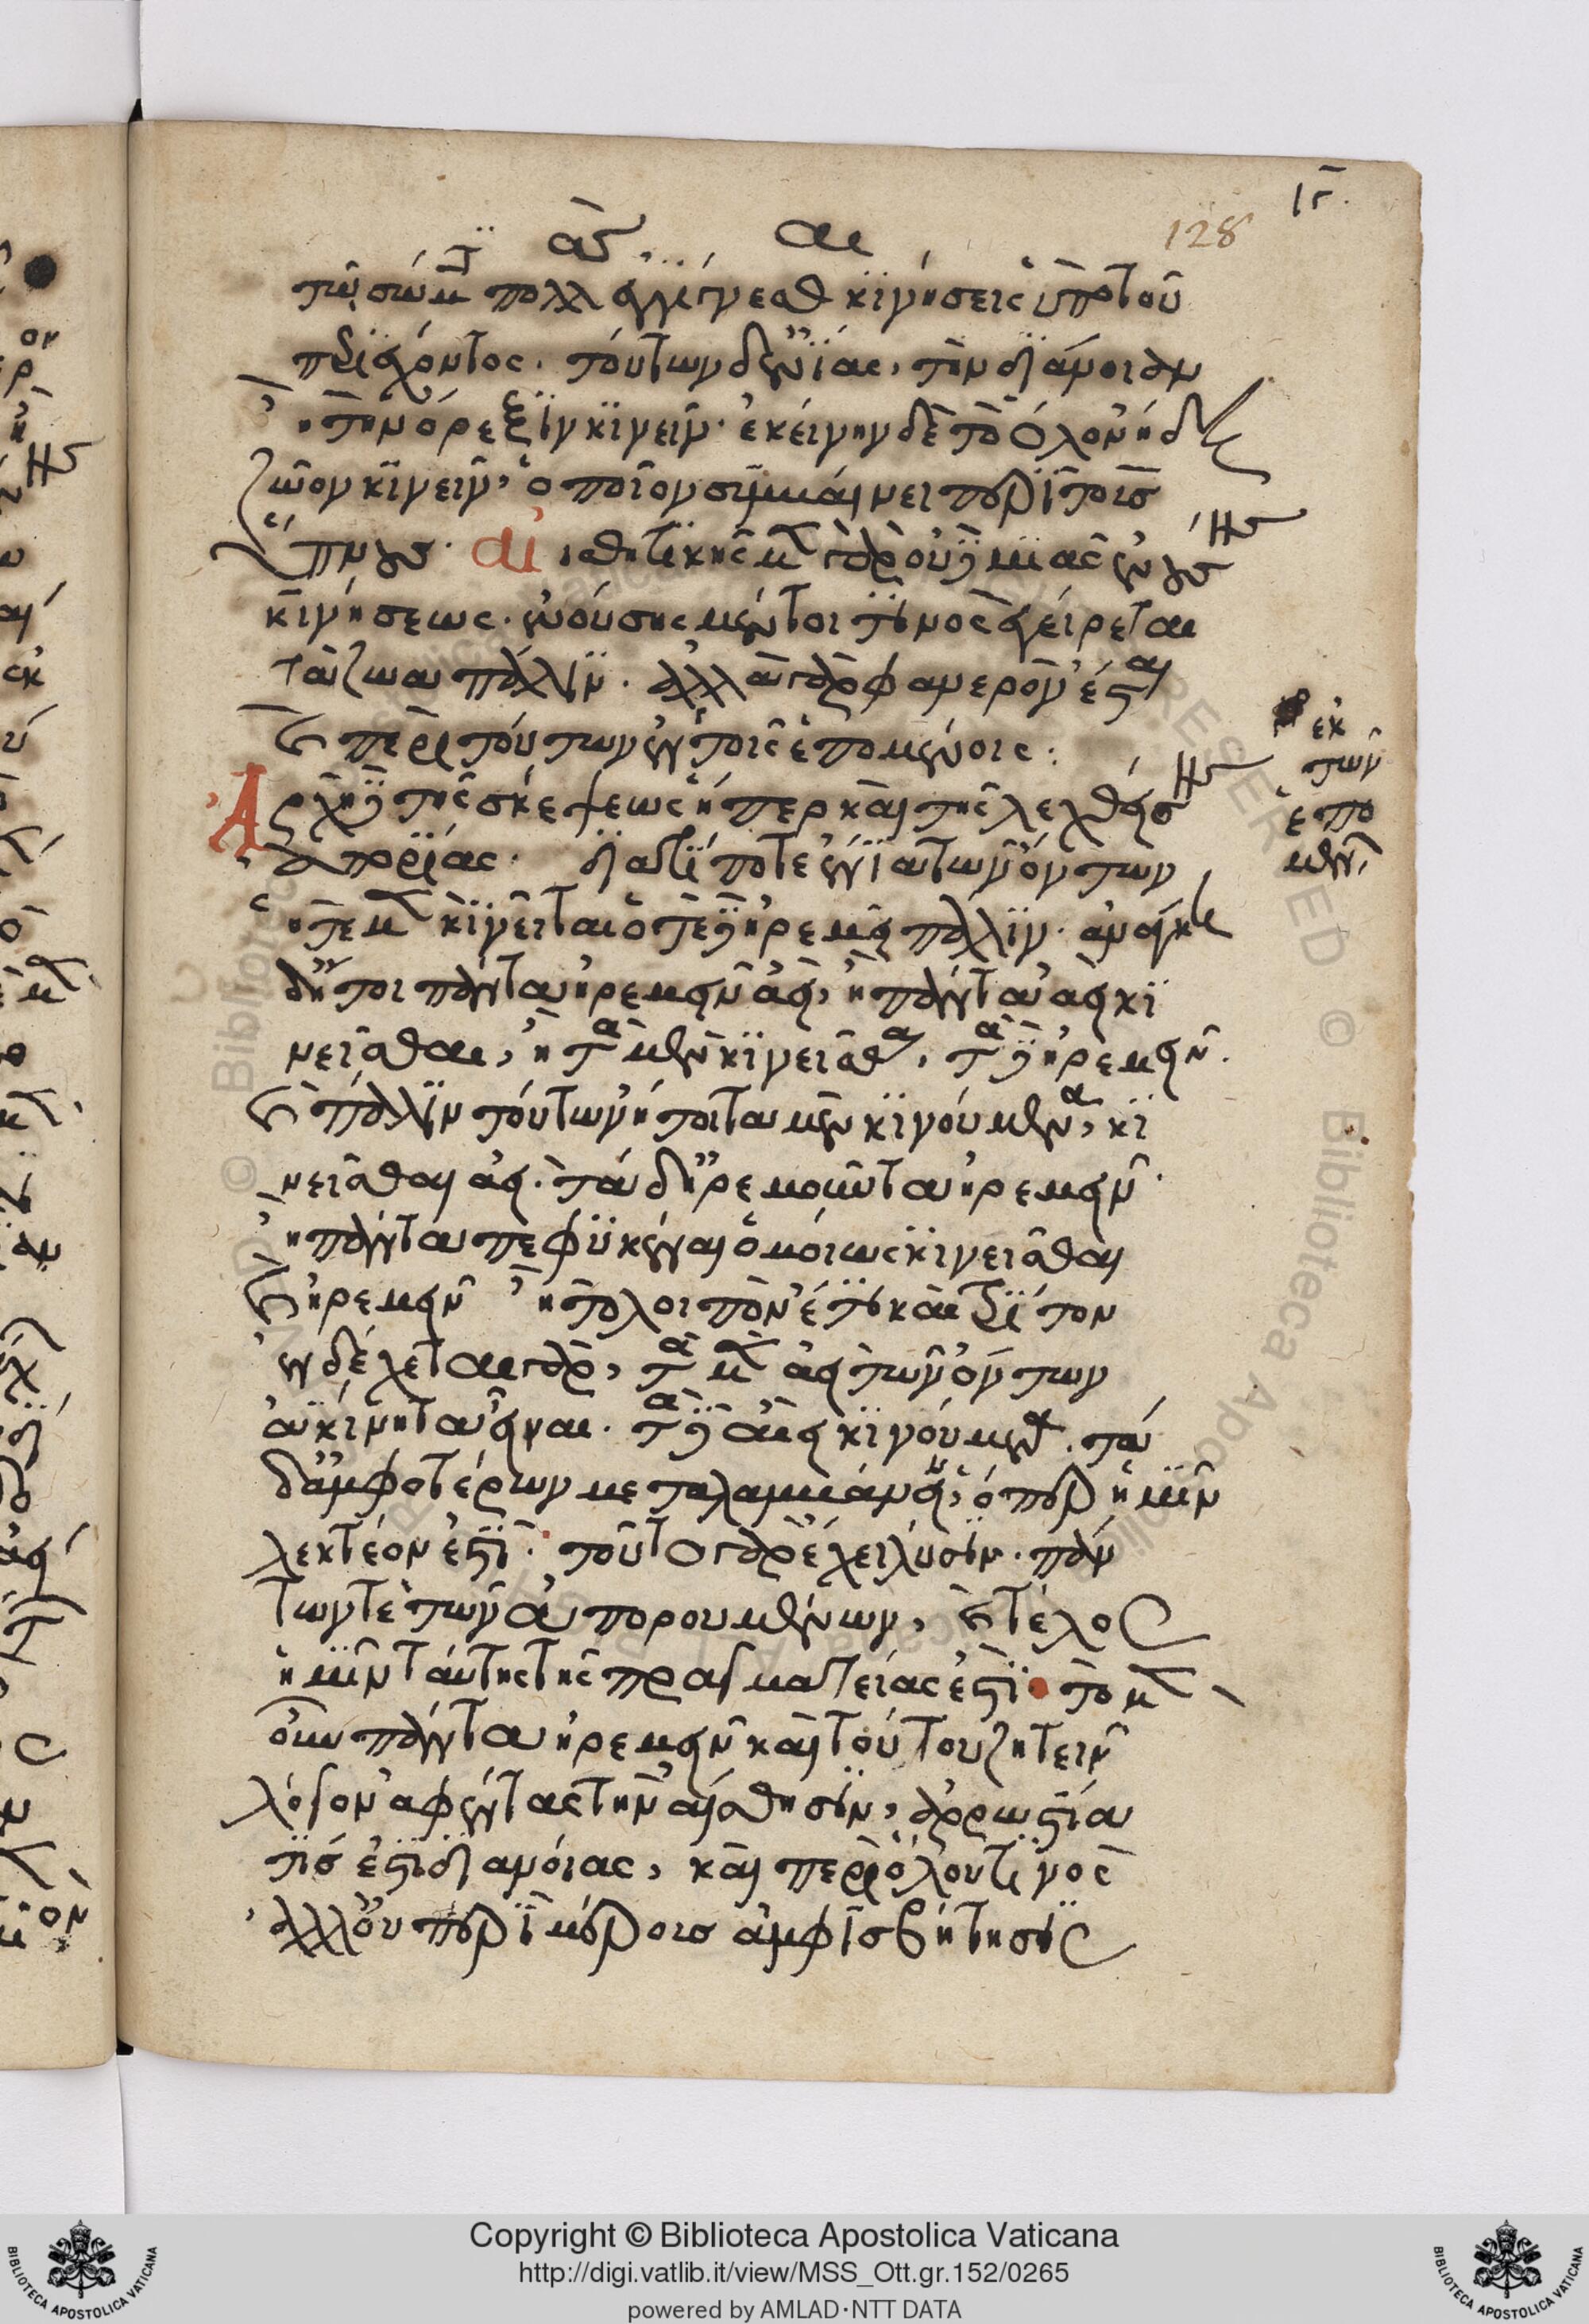 ιγ.
128
τῷ σώματι πολλὰς ἐγγίγνεσθαι κινήσεις ὑπὸ τοῦ
περιέχοντος. τούτων δ' ἐνίας, τὴν διάνοιαν
ἢ τὴν ὄρεξιν κινεῖν. ἐκείνην δὲ τὸ ὅλον ἤδη
ζῶον κινεῖν, ὁποῖον συμβαίνει περὶ τοὺς
ὕπνους. αἰσθητικῆς μὲν γὰρ οὐδεμιᾶς ἐνούσης
κινήσεως. ἐνούσης μέντοι τινὸς ἐγείρεται
τὰ ζῶα πάλιν. ἀλλὰ γὰρ φανερὸν ἔσται
καὶ περὶ τούτων ἐν τοῖς ἑπομένοις:
Ἀρχὴ δὲ τῆς σκέψεως ἥπερ καὶ τῆς λεχθείσης
ἀπορίας. διατί ποτε ἔνια τῶν ὄντων
ὁτὲ μὲν κινεῖται ὁτὲ δὲ ἠρεμεῖ πάλιν. ἀνάγκη
δή τοι πάντα ἠρεμεῖν ἀεί, ἢ πάντα ἀεὶ κι
νεῖσθαι, ἢ τὰ μὲν κινεῖσθαι, τὰ δὲ ἠρεμεῖν.
καὶ πάλιν τούτων ἤτοι τὰ μὲν κινούμενα, κι
νεῖσθαι ἀεί. τὰ δ' ἠρεμοῦντα ἠρεμεῖν.
ἢ πάντα πεφυκέναι ὁμοίως κινεῖσθαι
καὶ ἠρεμεῖν ἢ τὸ λοιπὸν ἔτι καὶ τρίτον
ἐνδέχεται γὰρ, τὰ μὲν ἀεὶ τῶν ὄντων
ἀκίνητα εἶναι. τὰ δὲ ἀεὶ κινούμενα. τὰ
δ' ἀμφοτέρων μεταλαμβάνειν, ὅπερ ἡμῖν
λεκτέον ἐστί. τοῦτο γὰρ ἔχει λύσιν. πάν
των τε τῶν ἀπορουμένων, καὶ τέλος
ἡμῖν ταύτης τῆς πραγματείας ἐστί. τὸ μὲν
οὖν πάντα ἠρεμεῖν καὶ τούτου ζητεῖν
λόγον ἀφέντας τὴν αἴσθησιν, ἀρρωστία
τίς ἐστι διανοίας, καὶ περὶ ὅλου τινὸς
ἀλλ' οὐ περὶ μέρους ἀμφισβήτησις
ἐκ
τῶν
ἑπο
μένων
Copyright © Biblioteca Apostolica Vaticana
http://digi.vatlib.it/view/MSS_Ott.gr.152/0265
powered by AMLAD·NTT DATA
BIBLIOTECA APOSTOLICA VATICANA
BIBLIOTECA APOSTOLICA VATICANA